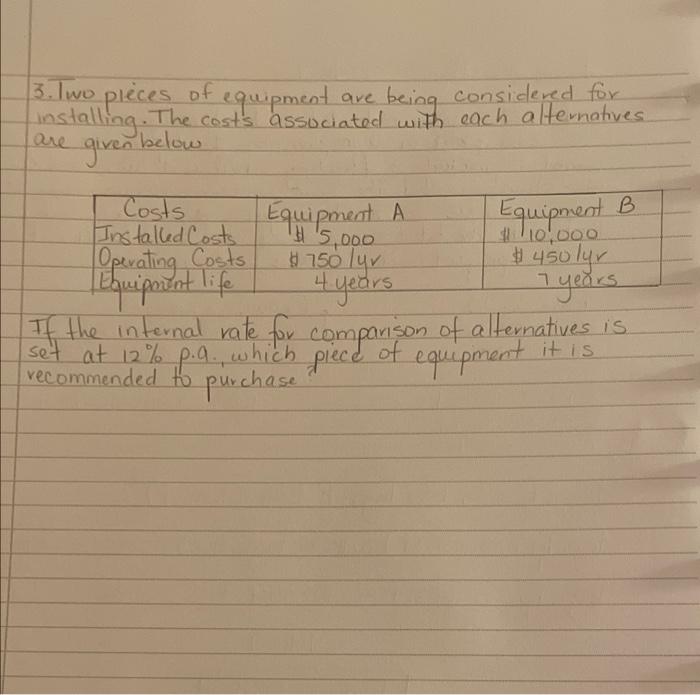 3. Two pieces of equipment are being considered for
installing. The costs associated with each alternatives
are given below
Costs Equipment A Equipment B
Installed Costs $ 5,000 $ 10,000
Operating Costs $ 750/yr $ 450/yr
Equipment life 4 years 7 years
If the internal rate for comparison of alternatives is
set at 12% p.a., which piece of equipment it is
recommended to purchase?